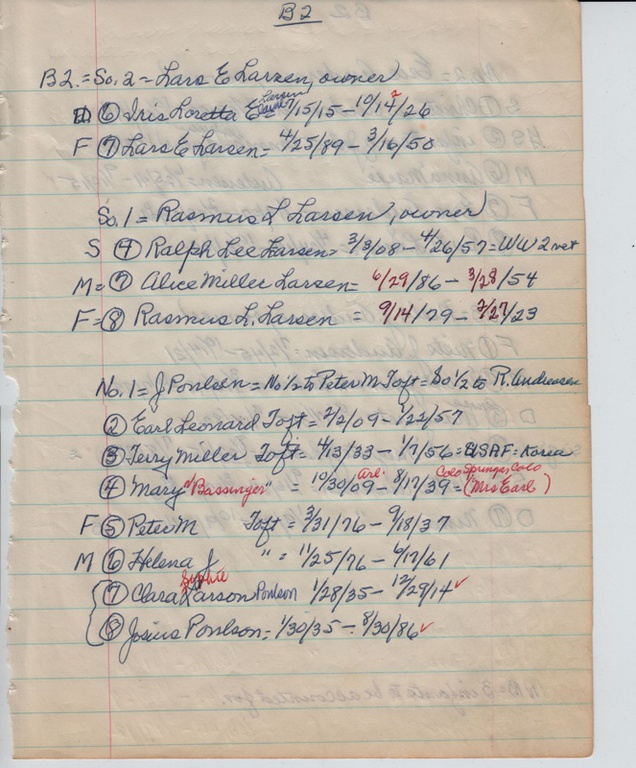 B2
B2. = So. 2 = Lars E Larsen, owner
D ⑥ Iris Loretta Larsen 7/15/15 - 10/14/26
F ⑦ Lars E Larsen = 4/25/89 - 3/16/50
So. 1 = Rasmus L Larsen, owner
S ④ Ralph Lee Larsen = 3/3/08 - 4/26/57 = WW2 vet
M = ⑦ Alice Miller Larsen = 6/29/86 - 3/28/54
F = ⑧ Rasmus L. Larsen = 9/14/79 - 2/27/23
No. 1 = J Poulsen = No 1/2 to Peter M Toft = So 1/2 to R. Andreasen
② Earl Leonard Toft = 2/2/09 - 1/22/57
③ Terry Miller Toft = 4/13/33 - 1/7/56 = USAF = Korea
④ Mary "Bassinger" " = 10/30/09 Ark. - 8/17/39 = Colo Springs, Colo (Mrs Earl)
F ⑤ Peter M Toft = 3/31/76 - 9/18/37
M ⑥ Helena J " = 11/25/76 - 6/17/61
⑦ Clara Sophie Larson Poulson 1/28/35 - 12/29/14 ✓
⑧ Josius Poulson = 1/30/35 - 8/30/86 ✓